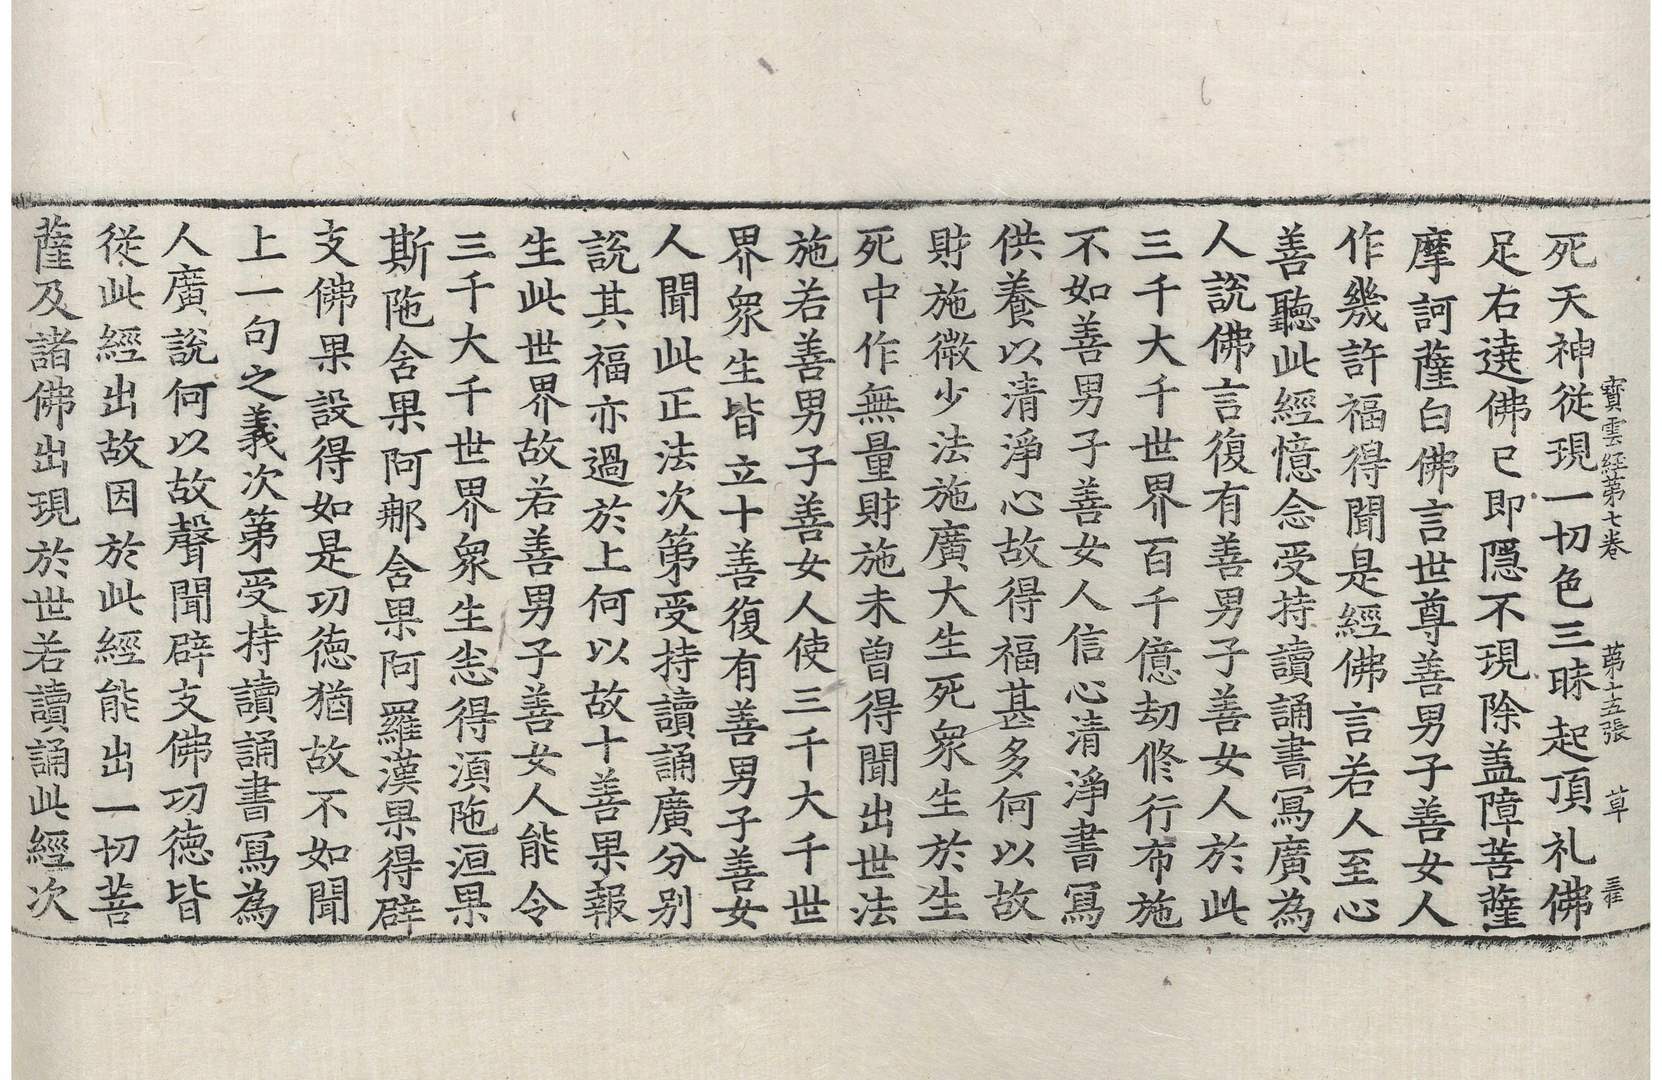 寳雲経第七巻 第十五張 草
死天神從現一切色三昧起頂礼佛
足右遶佛已即隱不現除盖障菩薩
摩訶薩白佛言世尊善男子善女人
作幾許福得聞是經佛言若人至心
善聽此經憶念受持讀誦書冩廣為
人說佛言復有善男子善女人於此
三千大千世界百千億劫修行布施
不如善男子善女人信心清淨書冩
供養以清淨心故得福甚多何以故
財施微少法施廣大生死衆生於生
死中作無量財施未曽得聞出世法
施若善男子善女人使三千大千世
界衆生皆立十善復有善男子善女
人聞此正法次第受持讀誦廣分別
說其福亦過於上何以故十善果報
生此世界故若善男子善女人能令
三千大千世界衆生悉得湏陁洹果
斯陁含果阿那含果阿羅漢果得辟
支佛果設得如是功徳猶故不如聞
上一句之義次第受持讀誦書冩為
人廣說何以故聲聞辟支佛功徳皆
從此經出故因於此經能出一切菩
薩及諸佛出現於世若讀誦此經次